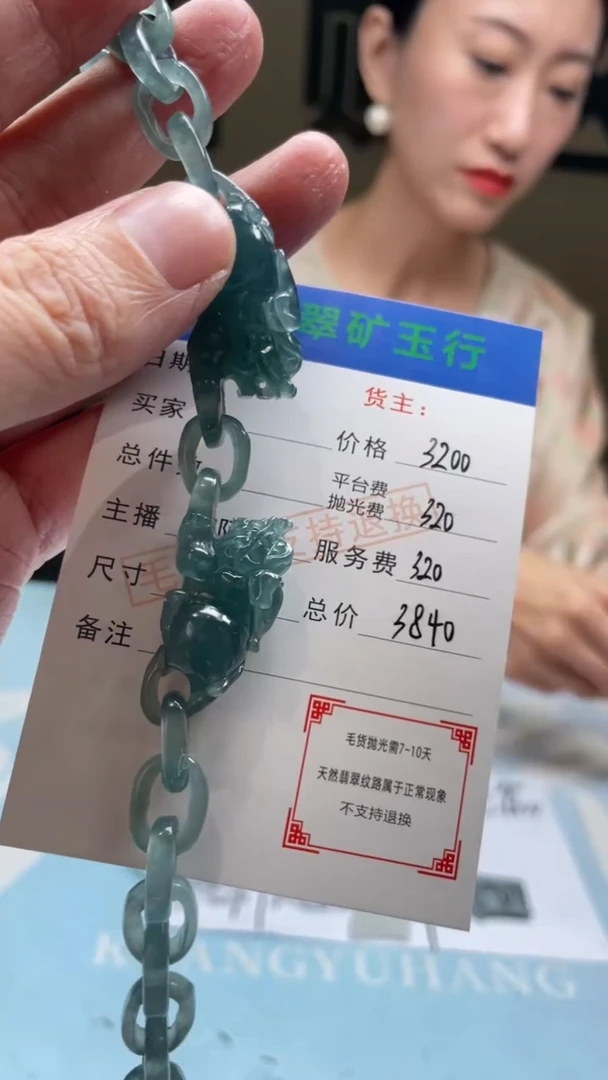 翠矿玉行
日期
货主：
买家
价格 3200
总件
平台费
抛光费 320
主播
服务费 320
尺寸
支持退换
总价 3840
备注
毛货抛光需7-10天
天然翡翠纹路属于正常现象
不支持退换
ANGYUHANG